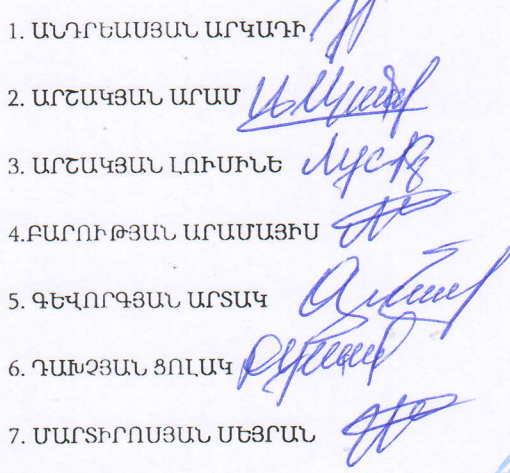 1. ԱՆԴՐԵԱՍՅԱՆ ԱՐԿԱԴԻ
2. ԱՐՇԱԿՅԱՆ ԱՐԱՄ
3. ԱՐՇԱԿՅԱՆ ԼՈՒՍԻՆԵ
4.ԲԱՐՈՒԹՅԱՆ ԱՐԱՄԱՅԻՍ
5. ԳԵՎՈՐԳՅԱՆ ԱՐՏԱԿ
6. ԴԱԽՉՅԱՆ ՑՈԼԱԿ
7. ՄԱՐՏԻՐՈՍՅԱՆ ՍԵՅՐԱՆ